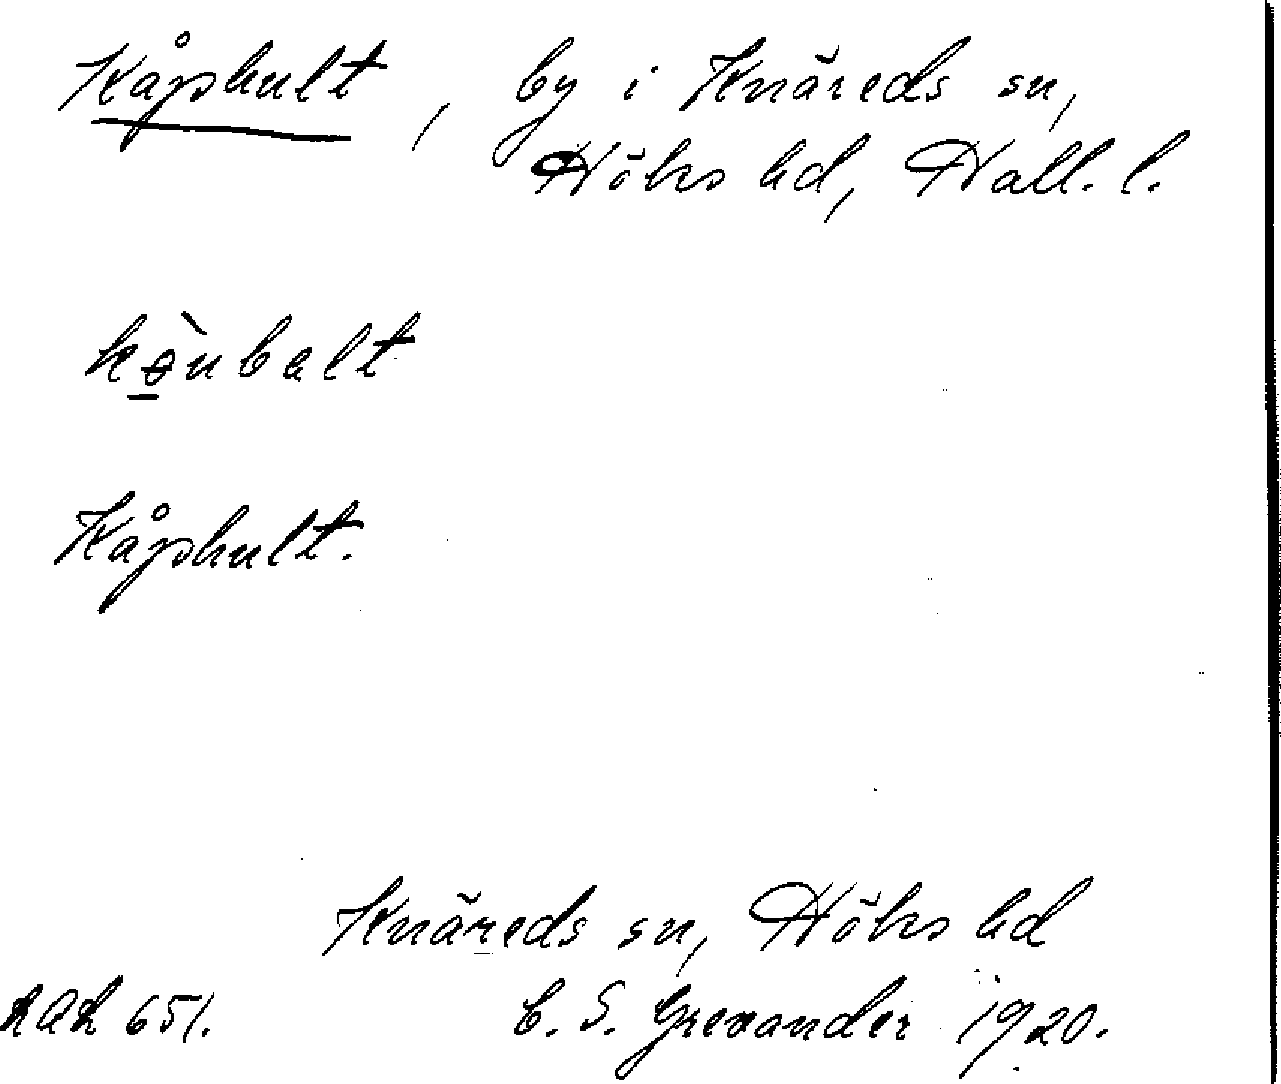 Kåphult, by i Knäreds sn,
Höks hd, Hall. l.
Kåphult.
Knäreds sn, Höks hd
651. E. S. Grexander 1920.